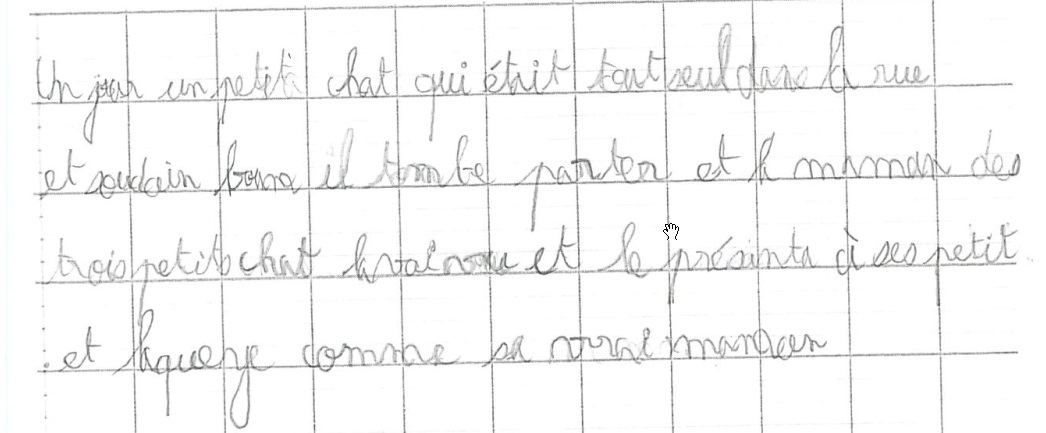 Un jour un petit chat qui était tout seul dans la rue
et soudain boum il tombe par ter et la maman des
trois petits chat et le présenta à ses petit
et comme sa vrai maman